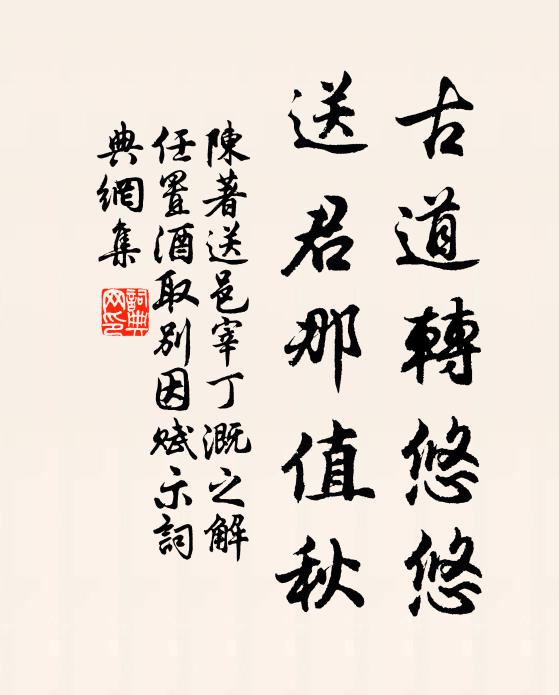 古道轉悠悠
送君那值秋
陳著送邑宰丁溉之解
任置酒取別因賦示詞
典網集
詞典
网印